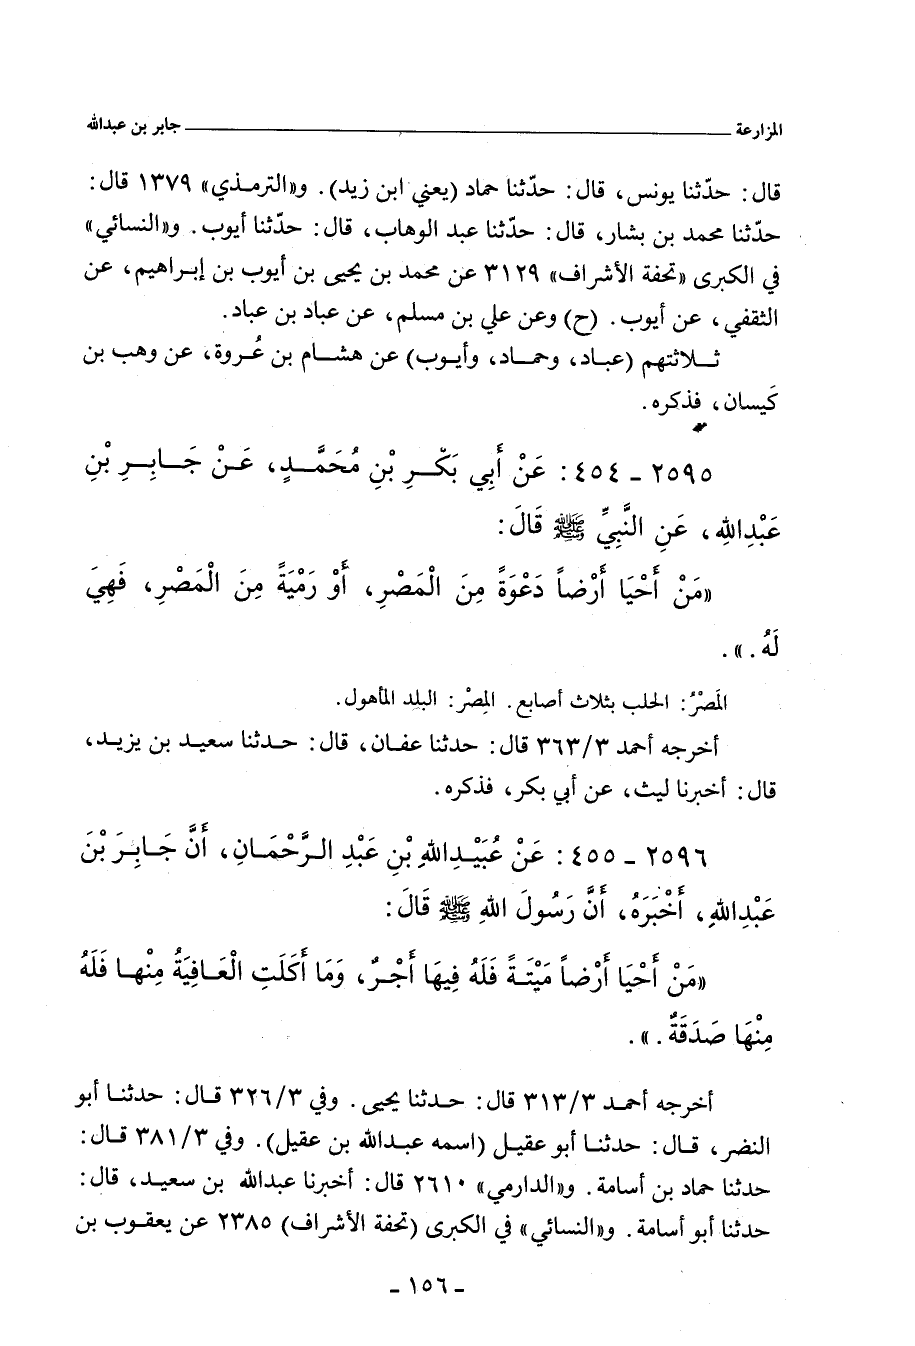 المزارعة ــــــــــ جابر بن عبدالله
قال: حدّثنا يونس، قال: حدّثنا حماد (يعني ابن زيد). و«الترمـذي» ١٣٧٩ قال:
حدّثنا محمد بن بشار، قال: حدّثنا عبد الوهاب، قال: حدّثنا أيوب. و«النسائي»
في الكبرى «تحفة الأشراف» ٣١٢٩ عن محمد بن يحيى بن أيوب بن إبراهيم، عن
الثقفي، عن أيوب. (ح) وعن علي بن مسلم، عن عباد بن عباد.
ثـلاثتهم (عبـاد، وحمـاد، وأيـوب) عن هشـام بن عُـروة، عن وهب بن
كَيسان، فذكره.
٢٥٩٥ ـ ٤٥٤: عَنْ أَبِي بَكْـرِ بْنِ مُحَمَّـدٍ، عَـنْ جَـابِـرِ بْنِ
عَبْدِاللهِ، عَنِ النَّبِيِّ ﷺ قَالَ:
«مَنْ أَحْيَا أَرْضاً دَعْوَةً مِنَ الْمَصْرِ، أَوْ رَمْيَةً مِنَ الْمَصْرِ، فَهِيَ
لَهُ.».
المَصْرُ: الحلب بثلاث أصابع. المِصْر: البلد المأهول.
أخرجه أحمد ٣/٣٦٣ قال: حدثنا عفـان، قال: حـدثنا سعيـد بن يزيـد،
قال: أخبرنا ليث، عن أبي بكر، فذكره.
٢٥٩٦ ـ ٤٥٥: عَنْ عُبَيْـدِاللهِ بْنِ عَبْدِ الـرَّحْمَـانِ، أَنَّ جَـابِـرَ بْنَ
عَبْدِاللهِ، أَخْبَرَهُ، أَنَّ رَسُولَ اللهِ ﷺ قَالَ:
«مَنْ أَحْيَا أَرْضاً مَيْتَـةً فَلَهُ فِيهَا أَجْـرٌ، وَمَا أَكَلَتِ الْعَـافِيَةُ مِنْهـا فَلَهُ
مِنْهَا صَدَقَةٌ.».
أخرجه أحمـد ٣/٣١٣ قال: حـدثنا يحيى. وفي ٣/٣٢٦ قـال: حدثنـا أبو
النضر، قـال: حدثنـا أبو عقيـل (اسمه عبـدالله بن عقيل). وفي ٣/٣٨١ قـال:
حدثنا حماد بن أسامة. و«الدارمي» ٢٦١٠ قال: أخبرنا عبدالله بن سعيـد، قال:
حدثنا أبو أسامة. و«النسائي» في الكبرى (تحفة الأشراف) ٢٣٨٥ عن يعقـوب بن
ـ ١٥٦ ـ